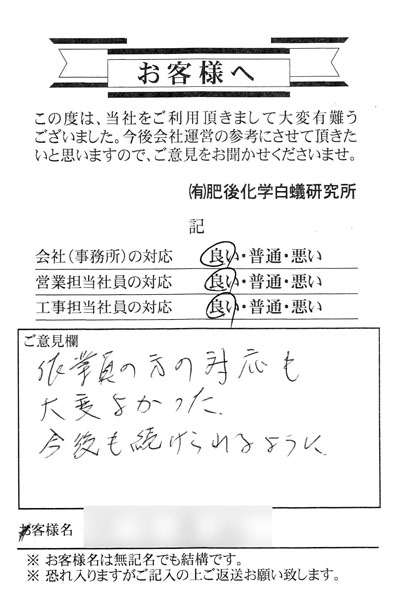 お客様へ
この度は、当社をご利用頂きまして大変有難う
ございました。今後会社運営の参考にさせて頂きた
いと思いますので、ご意見をお聞かせくださいませ。
㈲肥後化学白蟻研究所
記
会社（事務所）の対応　良い・普通・悪い
営業担当社員の対応　良い・普通・悪い
工事担当社員の対応　良い・普通・悪い
ご意見欄
作業員の方の対応も
大変よかった
今後も続けられるように、
お客様名
※ お客様名は無記名でも結構です。
※ 恐れ入りますがご記入の上ご返送お願い致します。